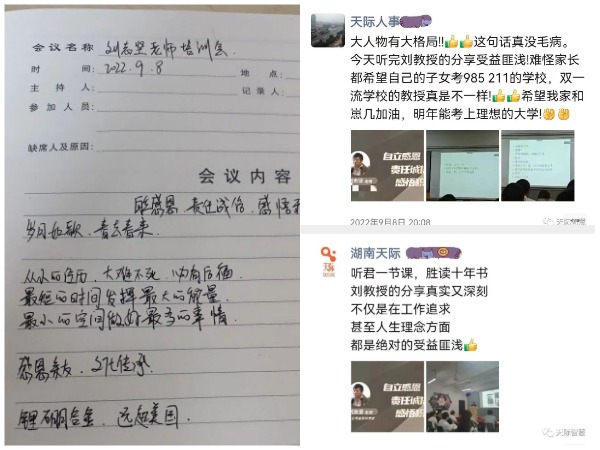 会议名称 刘志坚老师培训会
时间： 2022.9.8 地点：
主持人： 记录人：
参加人员：
缺席人及原因：
会议内容
感恩，责任诚信，感悟
岁月如歌，春去春来
从小的经历，大难不死，必有后福
最短的时间发挥最大的能量
最小的空间做好最多的事情
感恩亲友，文化传承
锂硼合金，远超美国
天际人事
大人物有大格局!!👍👍这句话真没毛病。
今天听完刘教授的分享受益匪浅!难怪家长
都希望自己的子女考985 211的学校，双一
流学校的教授真是不一样!👍👍希望我家和
崽几加油，明年能考上理想的大学!✊✊
自立感恩
责任诚
感悟
2022年9月8日 20:08
天际智慧
湖南天际
听君一节课，胜读十年书
刘教授的分享真实又深刻
不仅是在工作追求
甚至人生理念方面
都是绝对的受益匪浅👍
自立感恩
责任诚
感悟
天际智慧